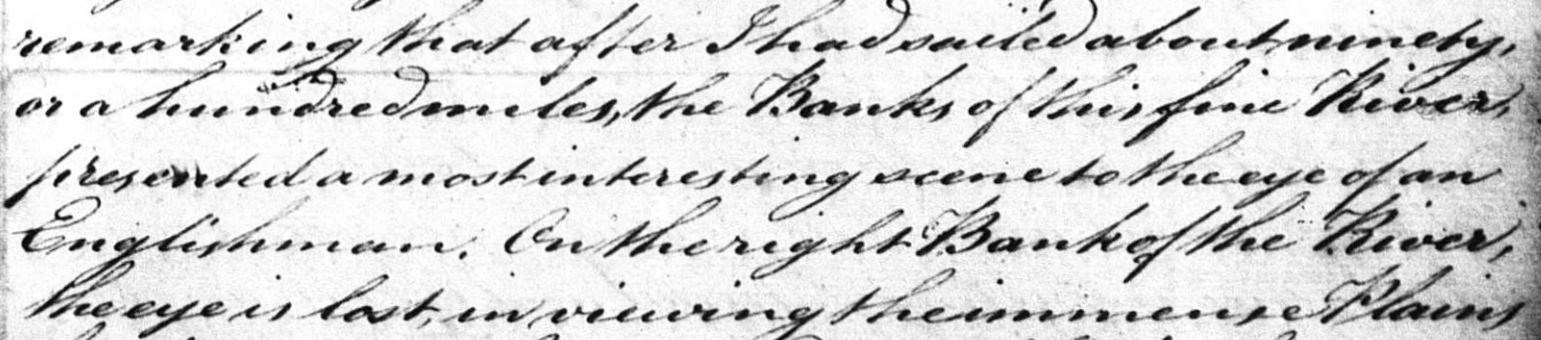 remarking that after I had sailed about ninety,
or a hundred miles, the Banks of this fine River,
presented a most interesting scene to the eye of an
Englishman. On the right Bank of the River,
the eye is lost, in viewing the immense Plains